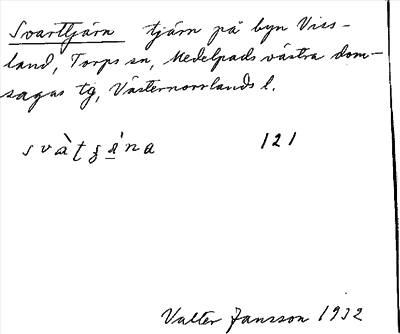 Svarttjärn tjärn på byn Viss-
land, Torps sn, Medelpads västra dom-
sagas tg, Västernorrlands l.
121
Valter Jansson 1932